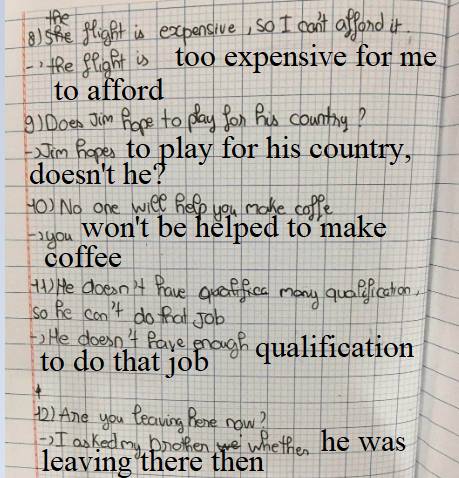 the
8) She flight is expensive, so I can't afford it.
-> the flight is too expensive for me
to afford
9) Does Jim hope to play for his country?
-> Jim hopes to play for his country,
doesn't he?
10) No one will help you make coffe
-> you won't be helped to make
coffee
11) He doesn't have qualifica many qualification,
so he can't do that job
-> He doesn't have enough qualification
to do that job
12) Are you leaving here now?
-> I asked my brother we whether he was
leaving there then